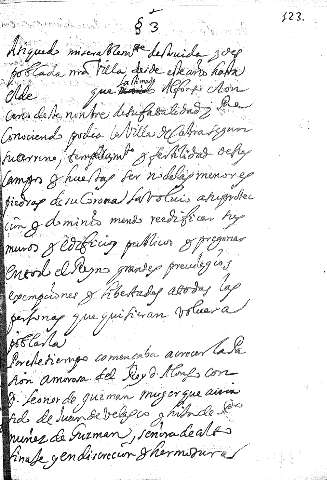 123.
§ 3
Assi quedó miserablemte destruida y des
poblada nra Villa, desde este año hasta
el de que lastimado Alfonso el on
ceno de este nombre de su fatalidad y Re
conociendo podia la Villa de Cabra segun
su terreno, templanza y fertilidad de sus
campos y huertas ser no de las menores
piedras de su Corona la volvio a su protec
cion y dominio mando reedificar sus
muros y edificios publicos y pregonar
en todo el Reyno grandes previlegios
exempciones y libertades a todas las
personas que quisieran volver a
poblarla
Por este tiempo comenzaba a crecer la Pa
sion amorosa del Rey D. Alonso con
D. Leonor de Guzman muger que avia
sido de Juan de Velasco y hija de Pedro
nuñez de Guzman, señora de alto
linaje y en discrecion y hermosura